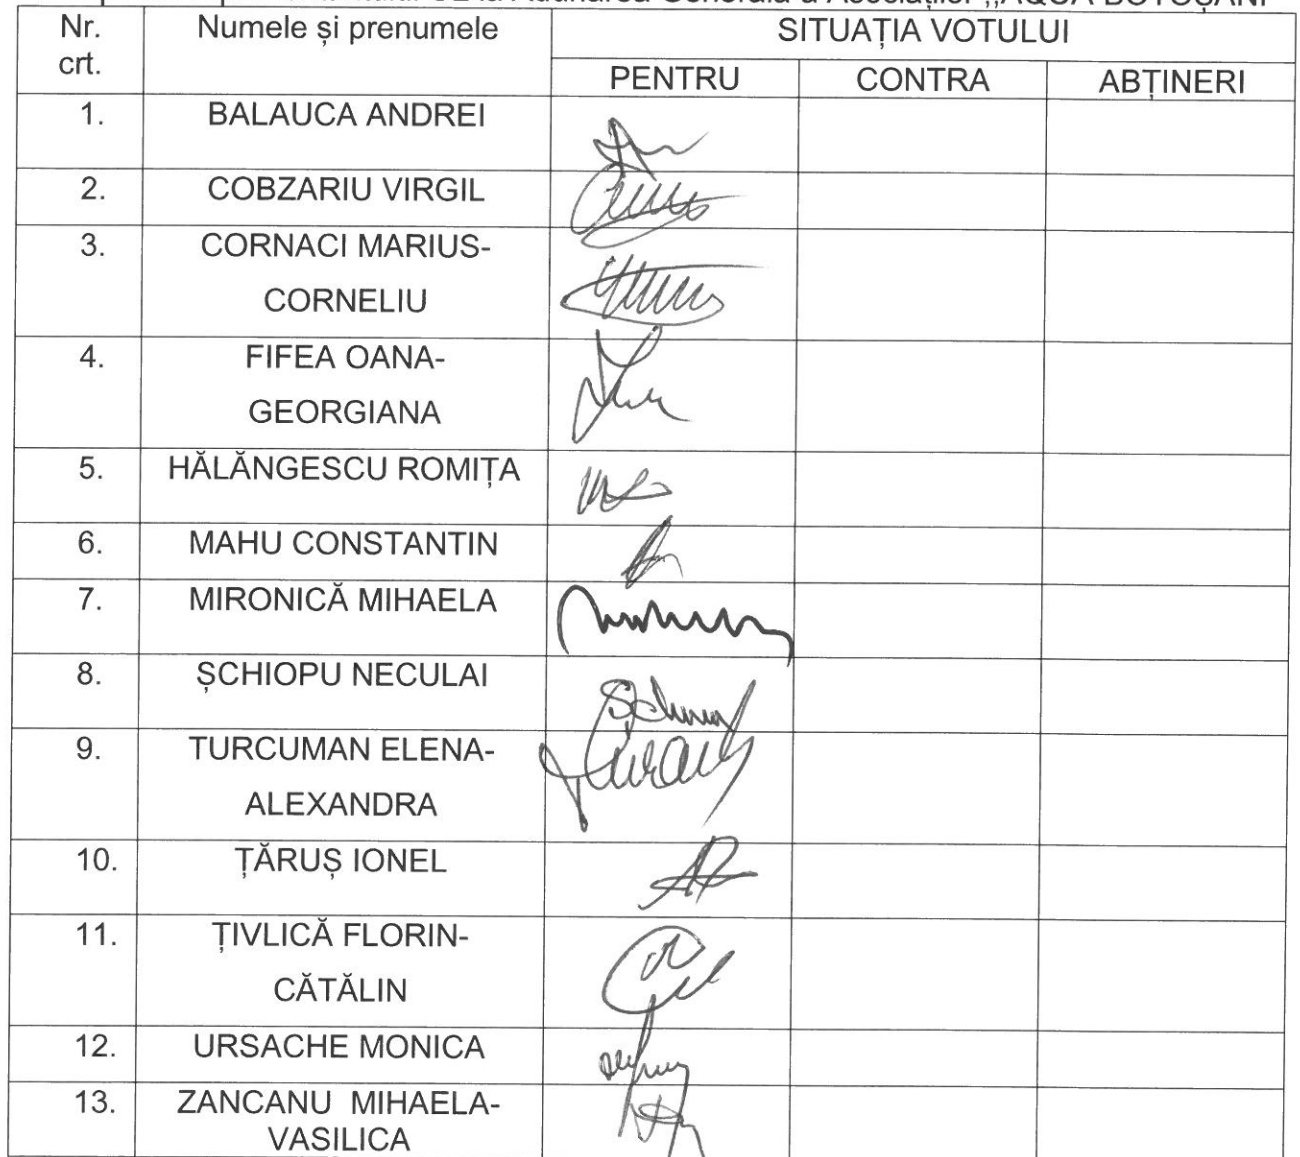 la Adunarea Generală a Asociaților ,,AQUA BOTOȘANI"
Nr. crt. Numele și prenumele SITUAȚIA VOTULUI
PENTRU CONTRA ABȚINERI
1. BALAUCA ANDREI
2. COBZARIU VIRGIL
3. CORNACI MARIUS-
CORNELIU
4. FIFEA OANA-
GEORGIANA
5. HĂLĂNGESCU ROMIȚA
6. MAHU CONSTANTIN
7. MIRONICĂ MIHAELA
8. ȘCHIOPU NECULAI
9. TURCUMAN ELENA-
ALEXANDRA
10. ȚĂRUȘ IONEL
11. ȚIVLICĂ FLORIN-
CĂTĂLIN
12. URSACHE MONICA
13. ZANCANU MIHAELA-
VASILICA